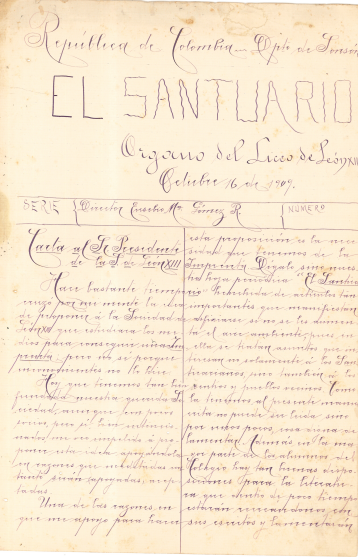 República de Colombia — Dpto de Sonsón
EL SANTUARIO
Organo del Liceo de León XIII
Octubre 16 de 1909.
SERIE
Director Eusebio Ma. Gómez R.
NUMERO
Carta al Sr Presidente
de la S. de León XIII
Hace bastante tiempo
vengo por mi mente la idea
de proponer á la Sociedad de
León XIII que estudiara los me
dios para conseguir una Im
prenta, pero no sé porque
inconvenientes no lo hice.
Hoy que tenemos tan bien
fundada nuestra querida So
ciedad, aunque con pocos
socios, pero sí bien intencio
nados, me veo impelido á pro
poner esta idea apoyándola
en razones que
serán apoyadas, acep
tadas.
Una de las razones en
que me apoyo para hacer
esta proposición es la nece
sidad que tenemos de la
Imprenta. Dígalo sino nues
tra hoja periódica "El Santua
rio" de artículos tan
importantes que manifiestan
si se les aumenta
ta el
ella se tratan asuntos que in
teresan no solamente á los San
tuarianos, sino también á los
centros y pueblos vecinos. Como
la tenemos al presente manus
crita no puede ser leída sino
por unos pocos, cosa digna de
lamentar. Además en la ma
yor parte de los alumnos del
Colegio hay tan buenas dispo
siciones para la literatu
ra que dentro de poco tiempo
estarán
sus escritos y